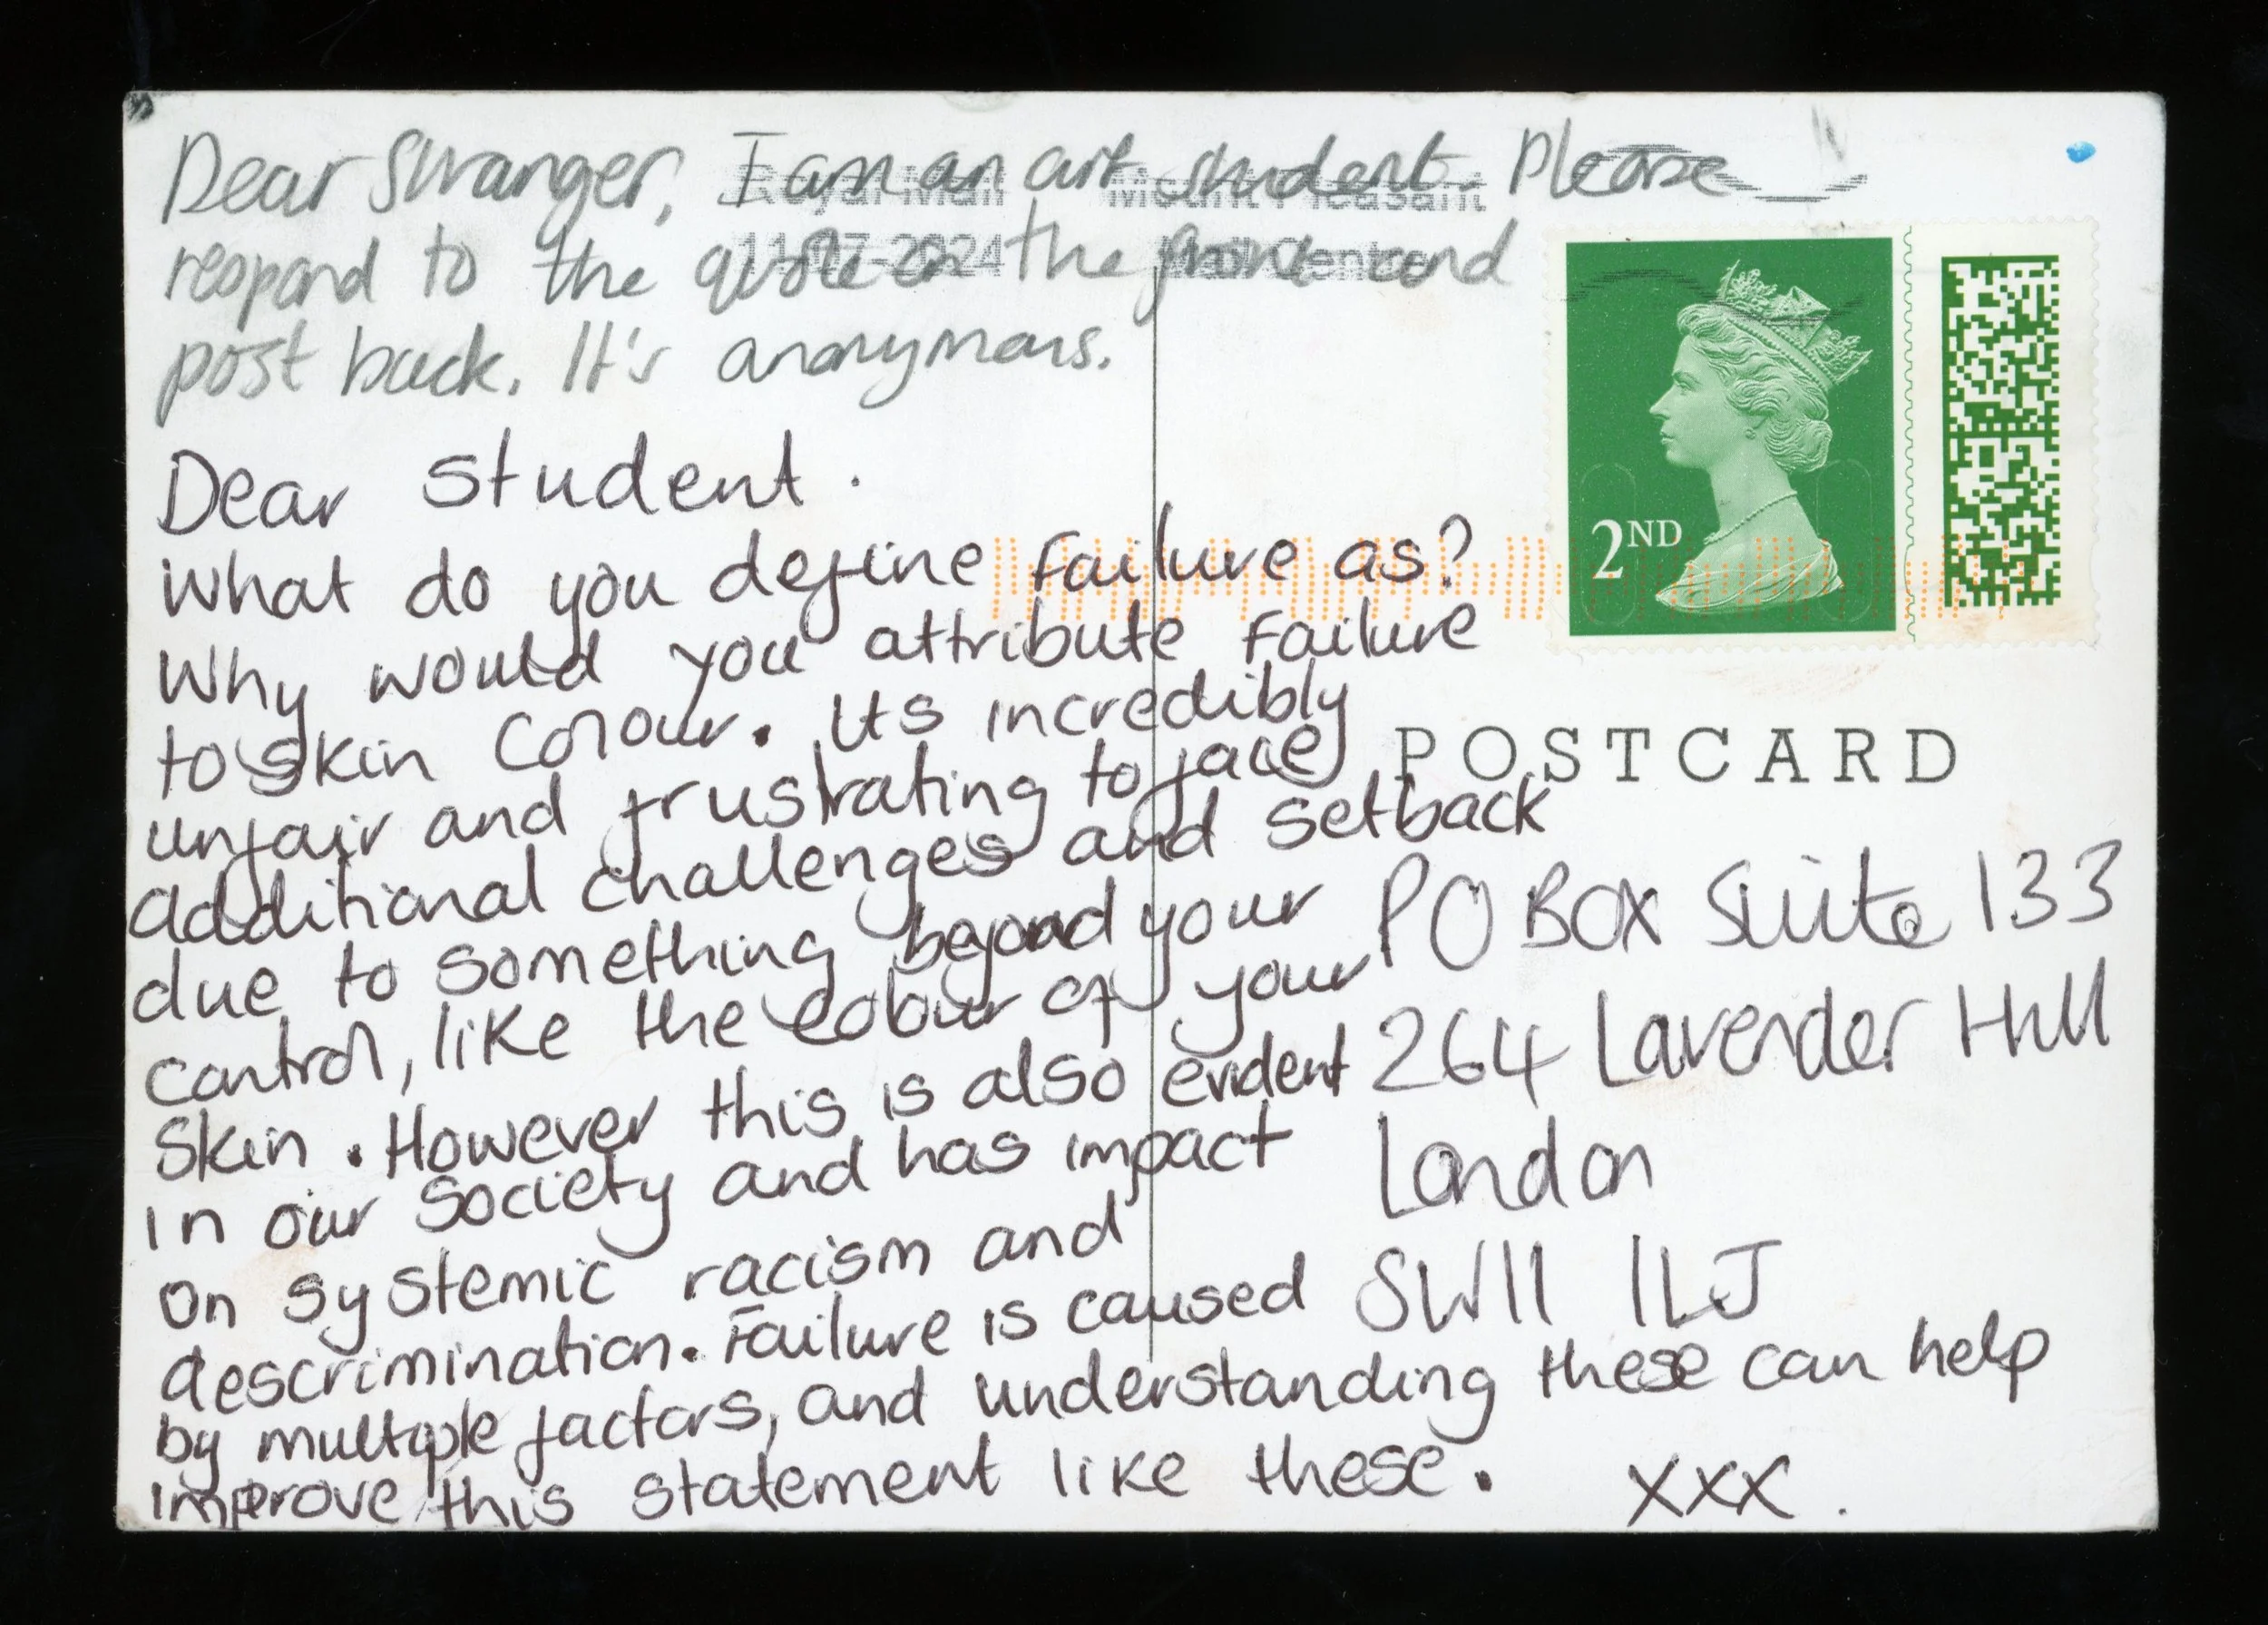 Dear Stranger, I am an art student. Please
respond to the quote on the front and
post back. It's anonymous.
Royal Mail Mount Pleasant
11-07-2024 Mail Centre
Dear Student.
What do you define failure as?
Why would you attribute failure
to skin colour. Its incredibly
unfair and frustrating to face
additional challenges and setback
due to something beyond your
control, like the colour of your
Skin. However this is also evident
in our society and has impact
on systemic racism and
descrimination. Failure is caused
by multiple factors, and understanding these can help
improve this statement like these. xxx.
2ND
POSTCARD
PO BOX Suite 133
264 Lavender Hill
London
SW11 1LJ